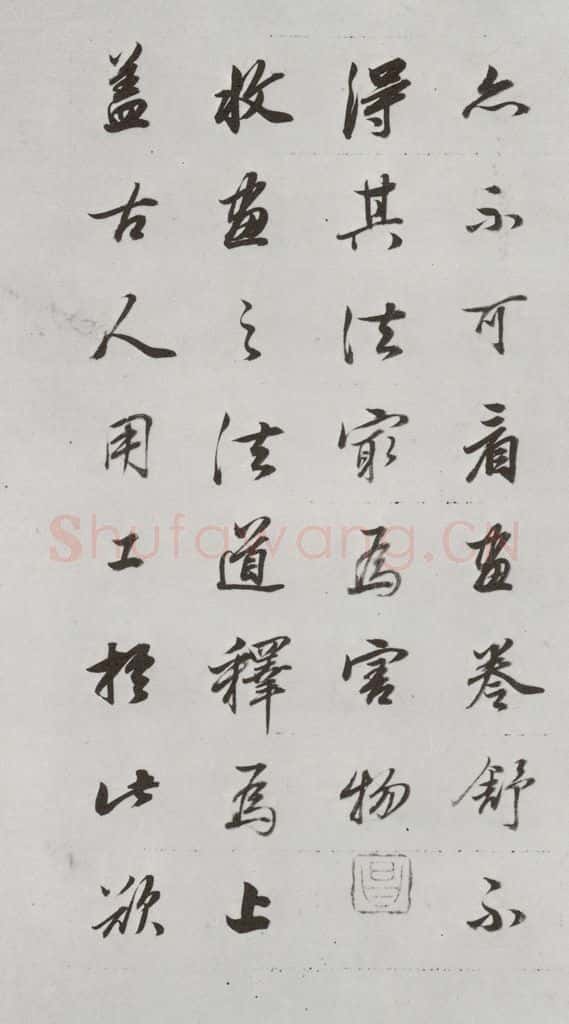 亦不可看畫卷舒不
得其法㝡爲害物
收畫之法道釋爲上
盖古人用工於此欲
Shufawang.CN